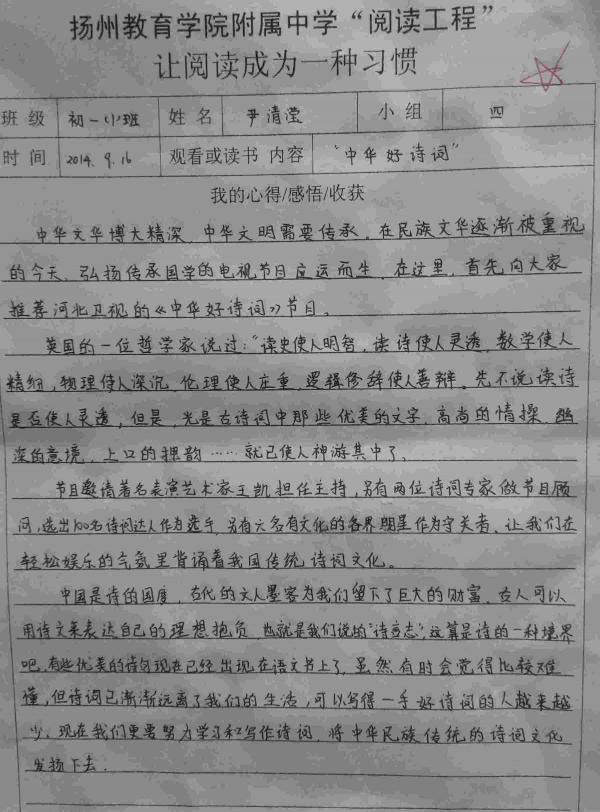 扬州教育学院附属中学“阅读工程”
让阅读成为一种习惯
班 级 初一(1)班 姓 名 尹清滢 小 组 四
时 间 2014.9.16 观看或读书 内容 “中华好诗词”
我的心得/感悟/收获
中华文华博大精深，中华文明需要传承。在民族文华逐渐被重视
的今天，弘扬传承国学的电视节目应运而生，在这里，首先向大家
推荐河北卫视的《中华好诗词》节目。
英国的一位哲学家说过：“读史使人明智，读诗使人灵透，数学使人
精细，物理使人深沉，伦理使人庄重，逻辑修辞使人善辩。先不说读诗
是否使人灵透，但是，光是古诗词中那些优美的文字，高尚的情操，幽
深的意境，上口的押韵……就已使人神游其中了。
节目邀请著名表演艺术家王凯担任主持，另有两位诗词专家做节目顾
问，选出100名诗词达人作为选手，另有六名有文化的各界明星作为守关者，让我们在
轻松娱乐的气氛里背诵着我国传统诗词文化。
中国是诗的国度，古代的文人墨客为我们留下了巨大的财富，古人可以
用诗文来表达自己的理想抱负，也就是我们说的“诗言志”，这算是诗的一种境界
吧，有些优美的诗句现在已经出现在语文书上了，虽然有时会觉得比较难
懂，但诗词已渐渐远离了我们的生活，可以写得一手好诗词的人越来越
少，现在我们更要努力学习和写作诗词，将中华民族传统的诗词文化
发扬下去。